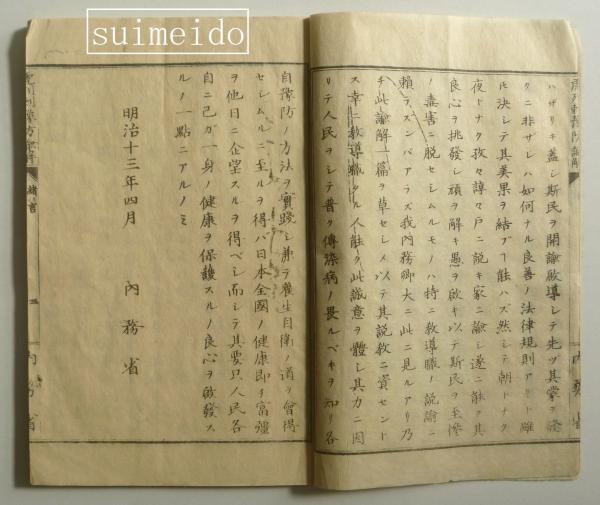 suimeido
ハザリキ蓋シ斯民ヲ開諭啟導シテ先ヅ其蒙ヲ發
クニ非ザレハ如何ナル良善ノ法律規則アリト雖
氏決シテ其美果ヲ結ブ一能ハズ然シテ朝トナク
夜トナク孜々諄々戸ニ説キ家ニ諭シ遂ニ能ク其
良心ヲ挑發シ頑ヲ解キ愚ヲ啟キ以テ斯民ヲ至慘
ノ毒害ニ脱セシムルモノハ特ニ教導職ノ説諭ニ
賴ラズンバアラズ我内務卿大ニ此ニ見ルアリ乃
チ此諭解一篇ヲ草セシメ以テ其説教ニ資セント
ス幸ニ教導職タル人能ク此誠意ヲ體シ其力ニ因
リテ人民ヲシテ普ク傳染病ノ畏ルベキヲ知リ各
自豫防ノ方法ヲ實踐シ兼テ養生自衛ノ道ヲ會得
セシムルニ至ルヲ得バ日本全國ノ健康即ヲ富殭
ヲ他日ニ企望スルヲ得ベシ而シテ其要只人民各
自ニ己ガ一身ノ健康ヲ保護スルノ良心ヲ啟發ス
ルノ一點ニアルノミ
明治十三年四月 内務省
緒言
三
内務省